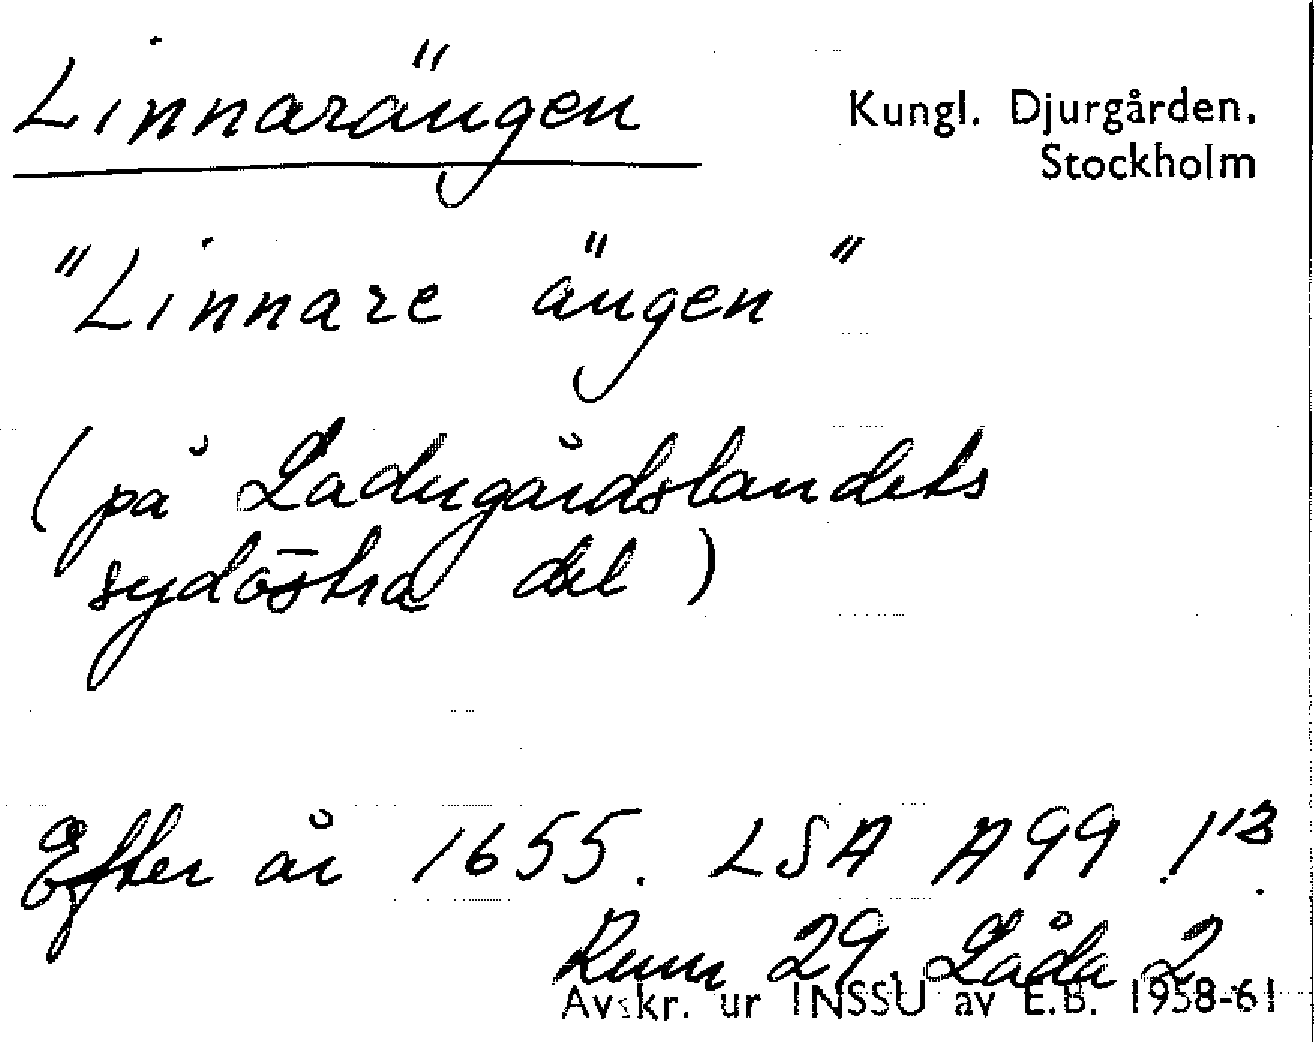 Linnarängen
Kungl. Djurgården.
Stockholm
"Linnare ängen"
(på Ladugårdslandets
sydöstra del)
Efter år 1655. LSA A99 1¹³.
Rum 29. Låda 2
Avskr. ur INSSU av E.B. 1958-61